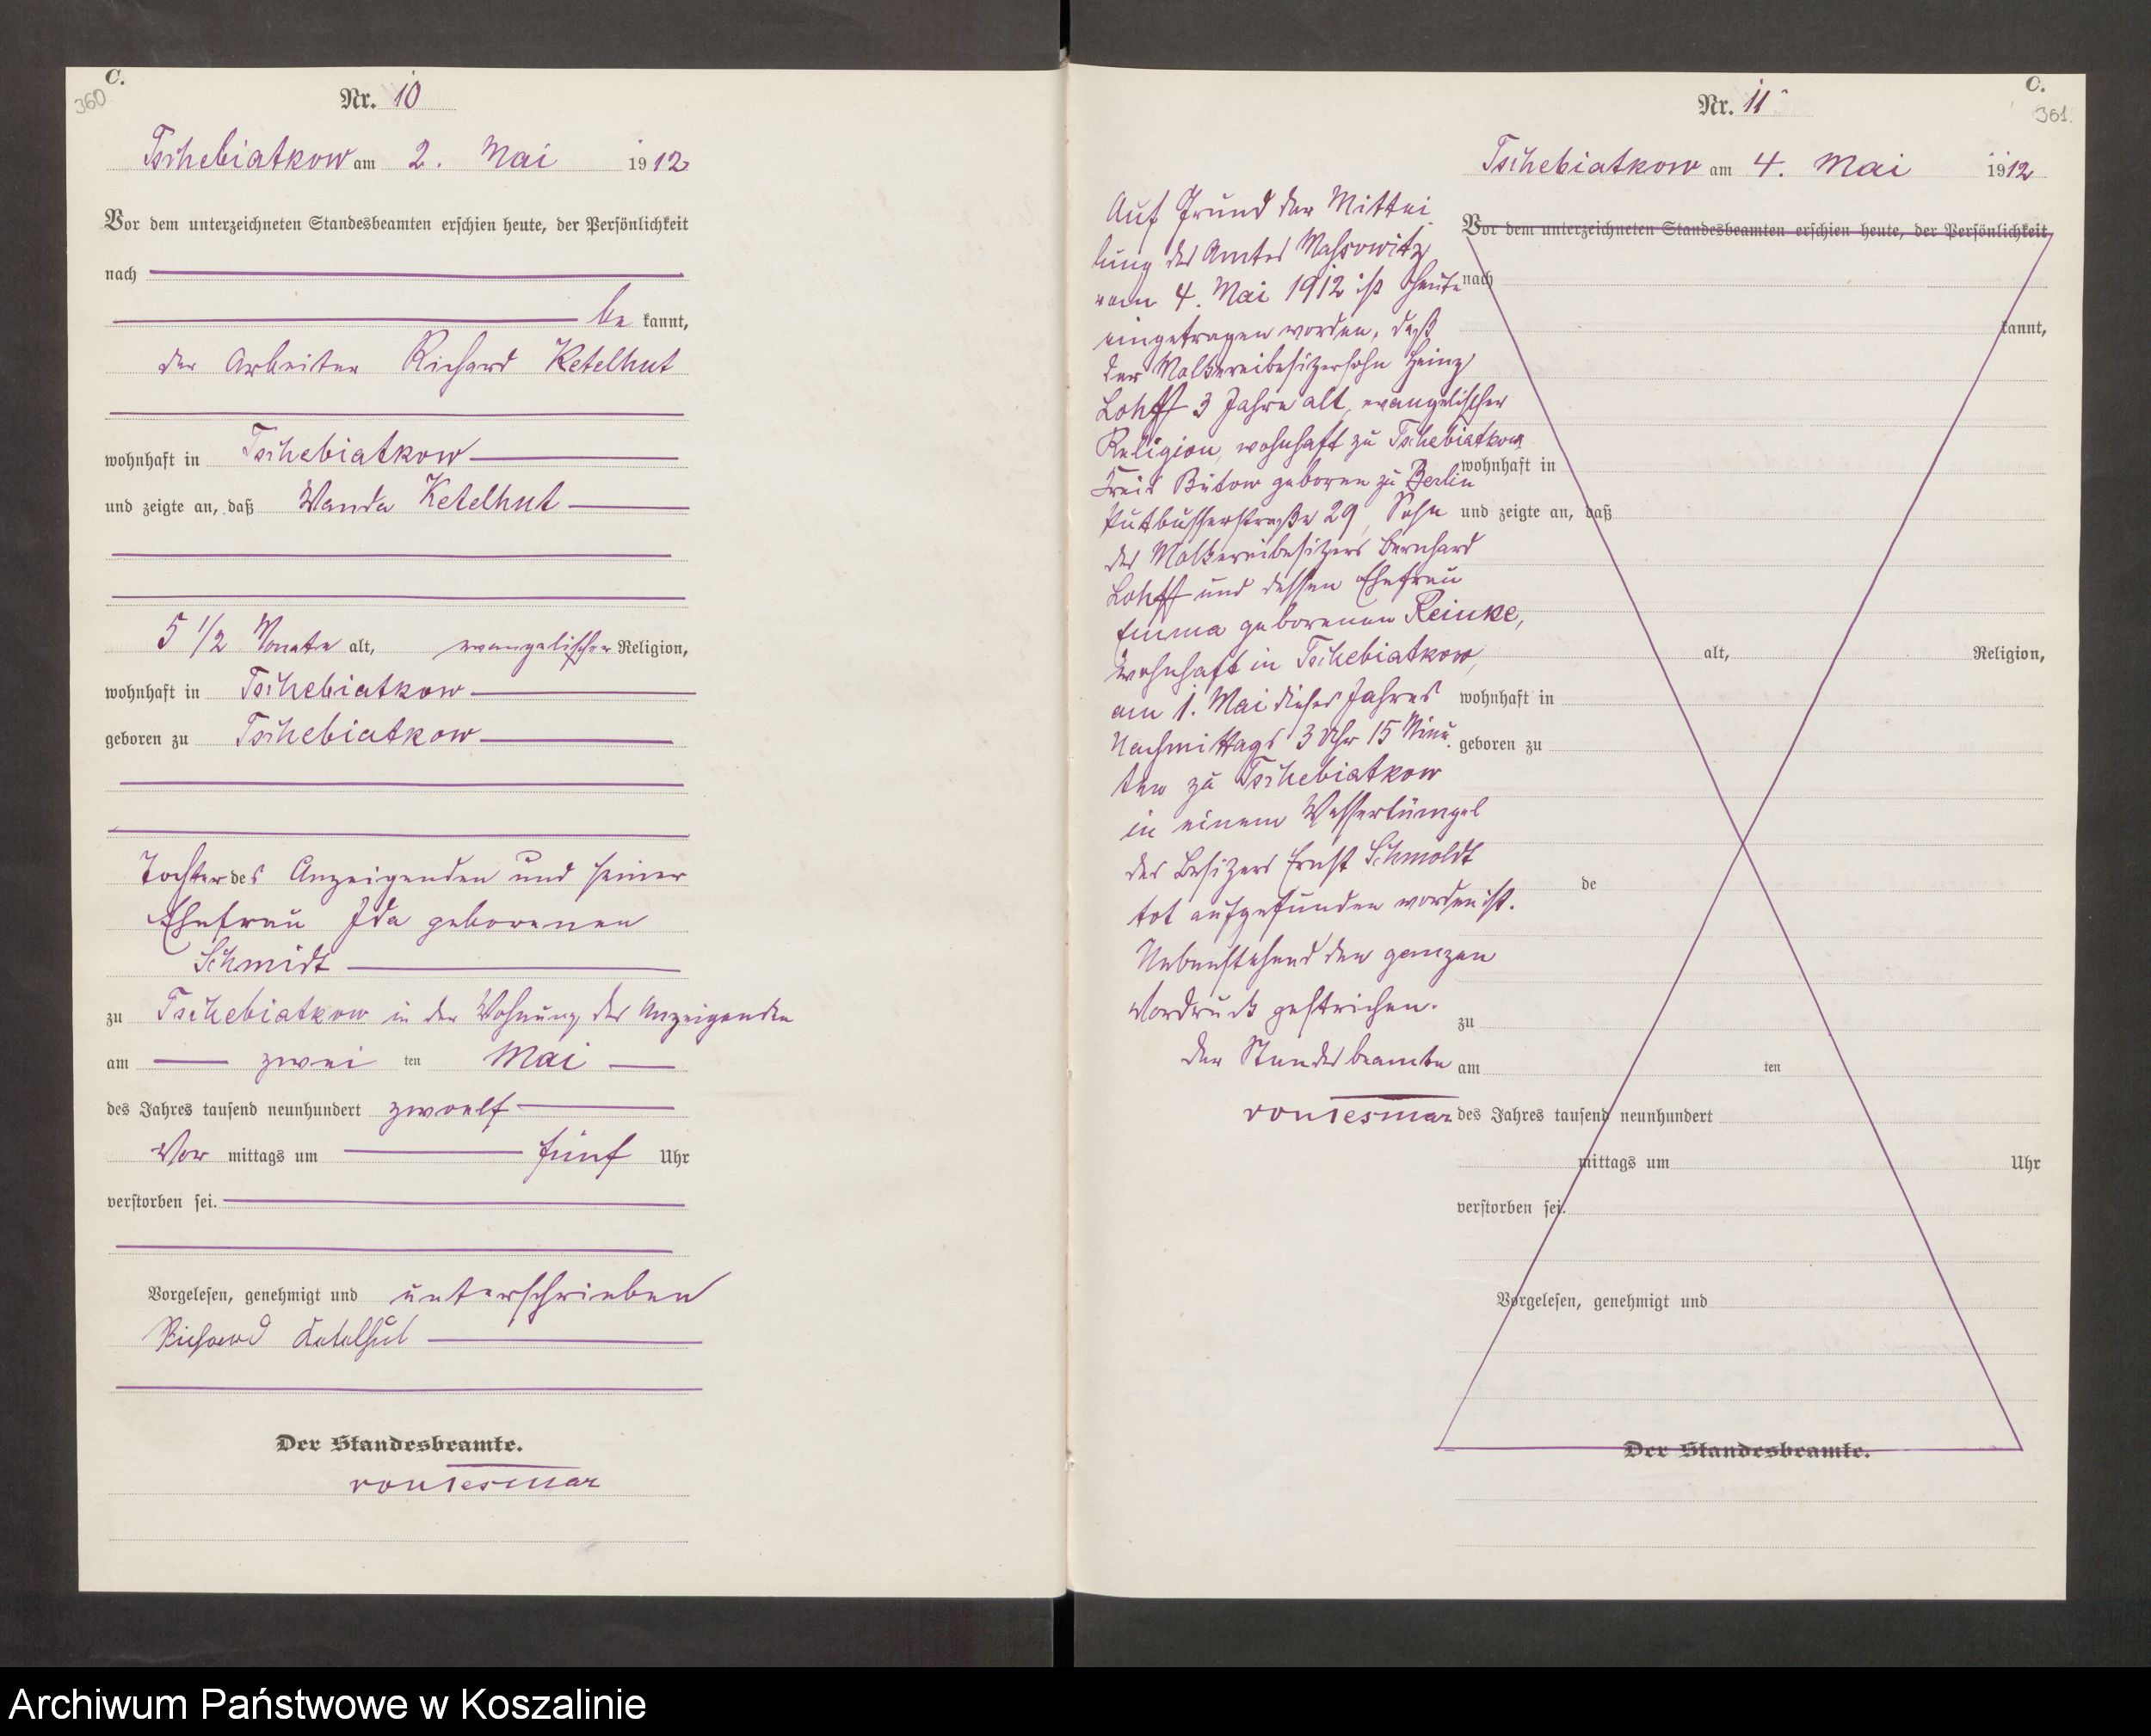 C.
360
Nr. 10
Tschebiatkow am 2. Mai 1912
Vor dem unterzeichneten Standesbeamten erschien heute, der Persönlichkeit
nach
be kannt,
der Arbeiter Richard Ketelhut
wohnhaft in Tschebiatkow
und zeigte an, daß Wanda Ketelhut
5 1/2 Monate alt, evangelischer Religion,
wohnhaft in Tschebiatkow
geboren zu Tschebiatkow
Tochter des Anzeigenden und seiner
Ehefrau Ida geborenen
Schmidt
zu Tschebiatkow in der Wohnung des Anzeigenden
am zwei ten Mai
des Jahres tausend neunhundert zwoelf
Vor mittags um fünf Uhr
verstorben sei.
Vorgelesen, genehmigt und unterschrieben
Richard Ketelhut
Der Standesbeamte.
C.
361.
Nr. 11
Tschebiatkow am 4. Mai 1912
Auf Grund der Mittei
lung des Amtes Massowitz
vom 4. Mai 1912 ist heute
eingetragen worden, daß
der Molkereibesitzersohn Heinz
Lohff 3 Jahre alt, evangelischer
Religion, wohnhaft zu Tschebiatkow
Kreis Bütow geboren zu Berlin
Putbusserstraße 29, Sohn
des Molkereibesitzers Bernhard
Lohff und dessen Ehefrau
Emma geborenen Reinke,
wohnhaft in Tschebiatkow,
am 1. Mai dieses Jahres
Nachmittags 3 Uhr 15 Minu
ten zu Tschebiatkow
in einem Wassertümpel
des Besitzers Ernst Schmoldt
tot aufgefunden worden ist.
Nebenstehend den ganzen
Vordruck gestrichen.
Der Standesbeamte
Vor dem unterzeichneten Standesbeamten erschien heute, der Persönlichkeit
nach
kannt,
wohnhaft in
und zeigte an, daß
alt, Religion,
wohnhaft in
geboren zu
de
zu
am ten
des Jahres tausend neunhundert
mittags um Uhr
verstorben sei.
Vorgelesen, genehmigt und
Der Standesbeamte.
Archiwum Państwowe w Koszalinie